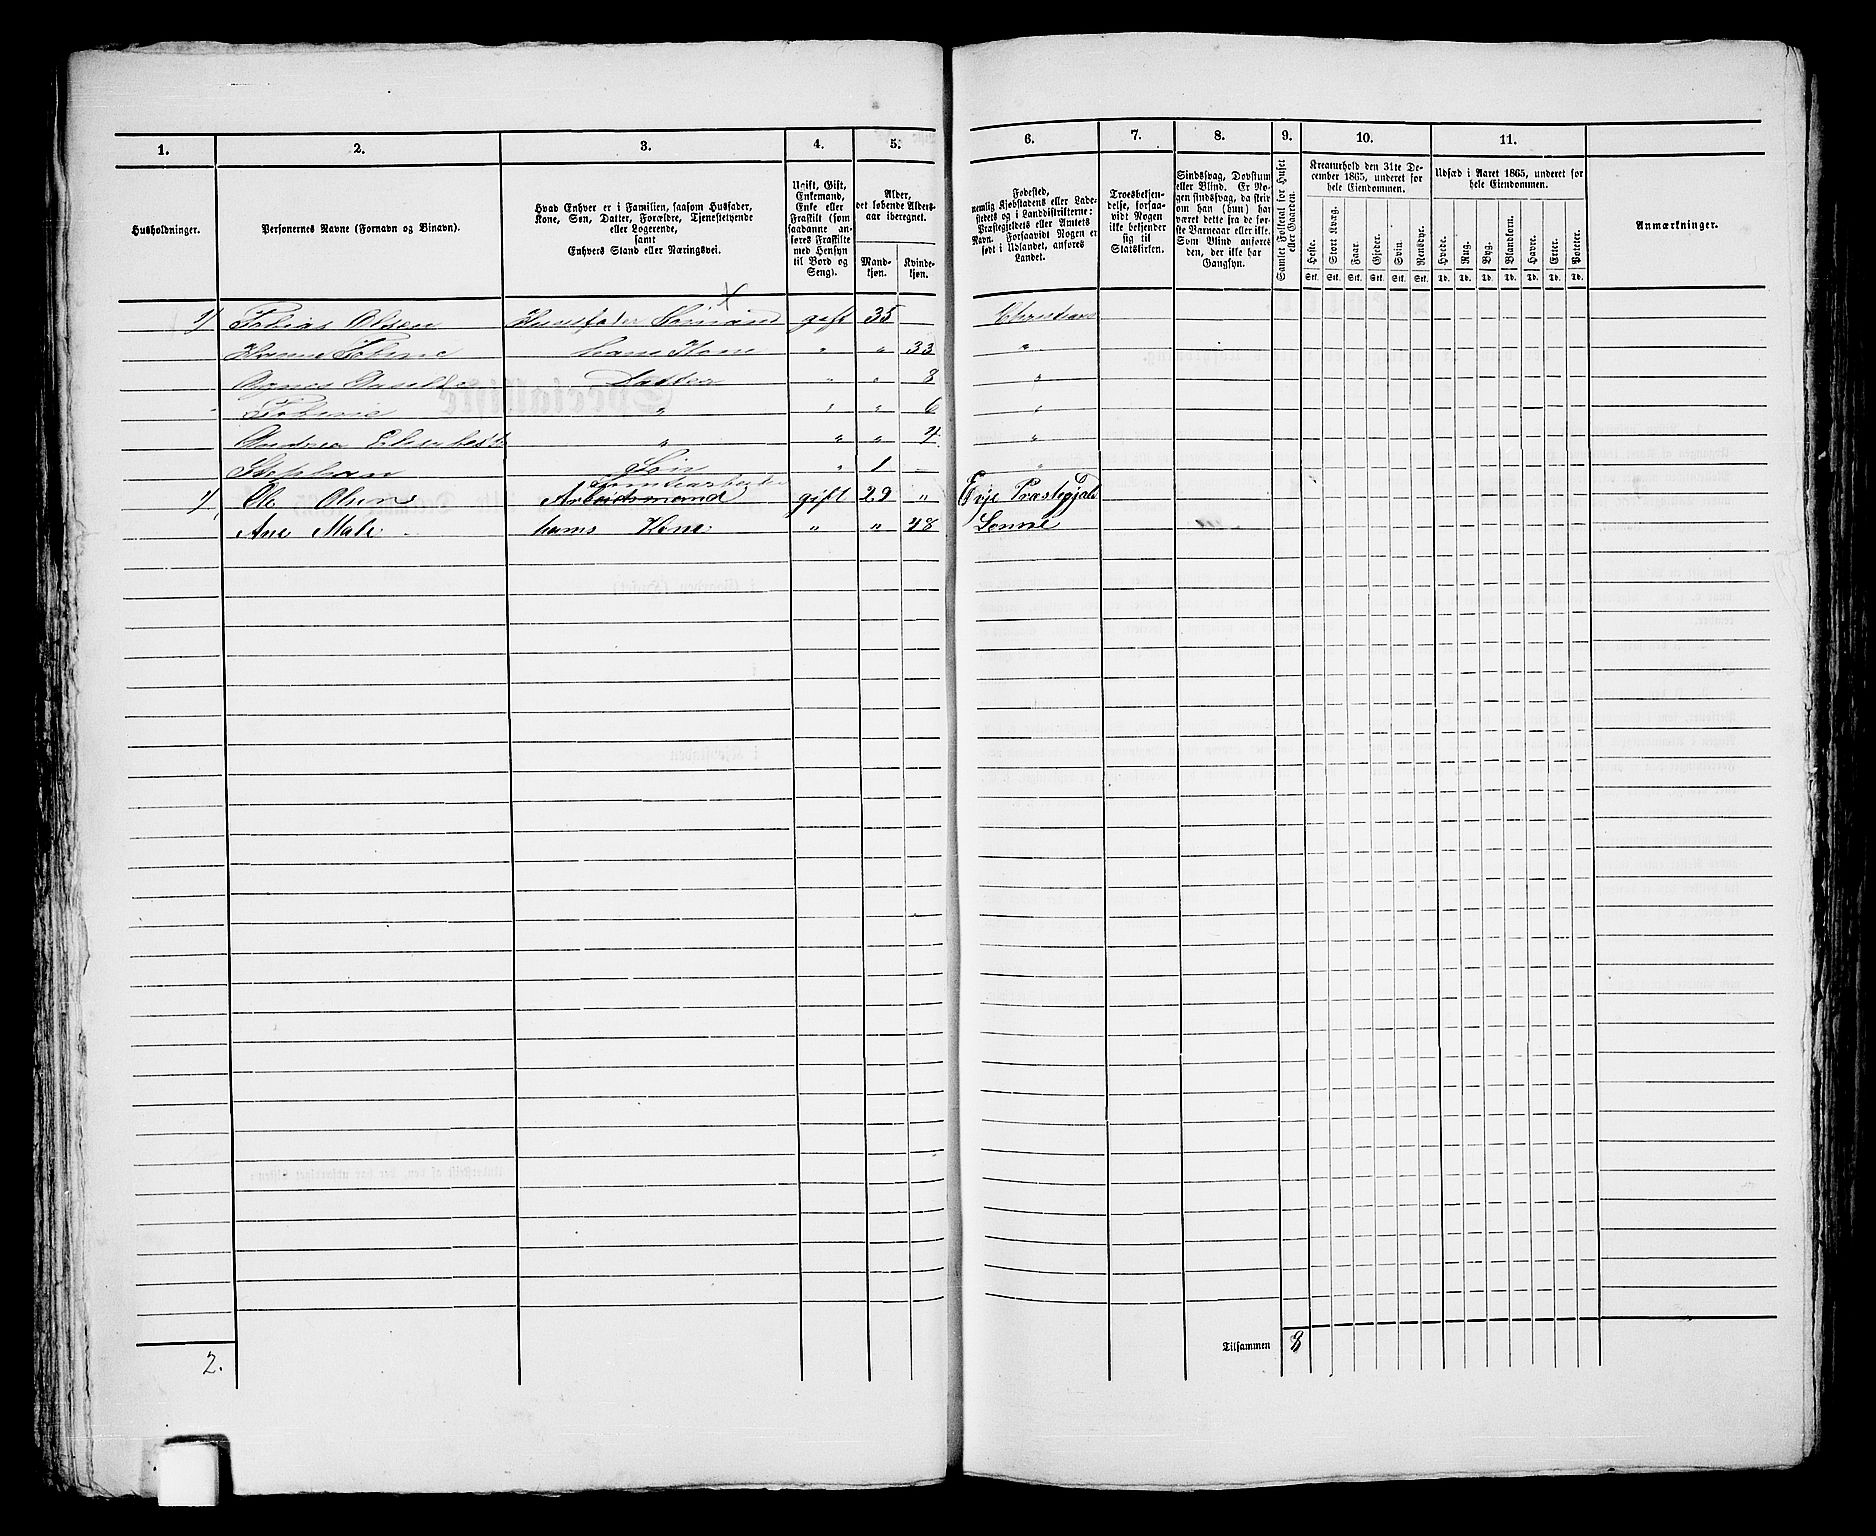 1. 2. 3. 4. 5. 6. 7. 8. 9. 10. 11.
Husholdninger.
Personernes Navne (Fornavn og Binavn).
Hvad Enhver er i Familien, saasom Husfader,
Kone, Søn, Datter, Forældre, Tjenestetyende
eller Logerende,
samt
Enhvers Stand eller Næringsvei.
Ugift, Gift,
Enkemand,
Enke eller
Fraskilt (som
saadanne an-
føres Fraskilte
med Hensyn
til Bord og
Seng).
Alder,
det løbende Alders-
aar iberegnet.
Mand-
kjøn.
Kvinde-
kjøn.
Fødested,
nemlig Kjøbstadens eller Lade-
stedets og i Landdistrikterne:
Præstegjeldets eller Amtets
Navn. Forsaavidt Nogen er
født i Udlandet, anføres
Landet.
Troesbekjen-
delse, forsaa-
vidt Nogen
ikke bekjender
sig til
Statskirken.
Sindssvag, Døvstum
eller Blind. Er No-
gen sindssvag, da skriv
om han (hun) har
været dette fra de før-
ste Barneaar eller ikke.
Som Blind anføres
den, der ikke har
Gangsyn.
Samlet Folketal for Huset
eller Gaarden.
Kreaturhold den 31te De-
cember 1865, underet for
hele Eiendommen.
Heste. Stort Kvæg. Faar. Gjeder. Sviin. Rensdyr.
Stk. Stk. Stk. Stk. Stk. Stk.
Udsæd i Aaret 1865, underet for
hele Eiendommen.
Hvede. Rug. Byg. Blandkorn. Havre. Erter. Poteter.
Td. Td. Td. Td. Td. Td. Td.
Anmærkninger.
1/ Tobias Olsen Huusfader Sømand gift 35 Christians
Tobine hans Kone " " 33 "
Datter " " 8 "
Tobine " " " 6 "
Andrea " " " 4 "
Stephan Søn " 1 "
1/ Ole Olsen Arbeidsmand gift 29 " Evje Præstegjeld
Ane Mali hans Kone " " 48
2. Tilsammen 8